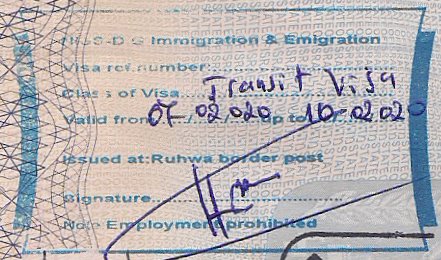 NISS-D G Immigration & Emigration
Visa ref.number:
Class of Visa Transit Visa
Valid from 07 02 020 up to 10-02 020
Issued at:Ruhwa border post
Signature
Note Employment prohibited